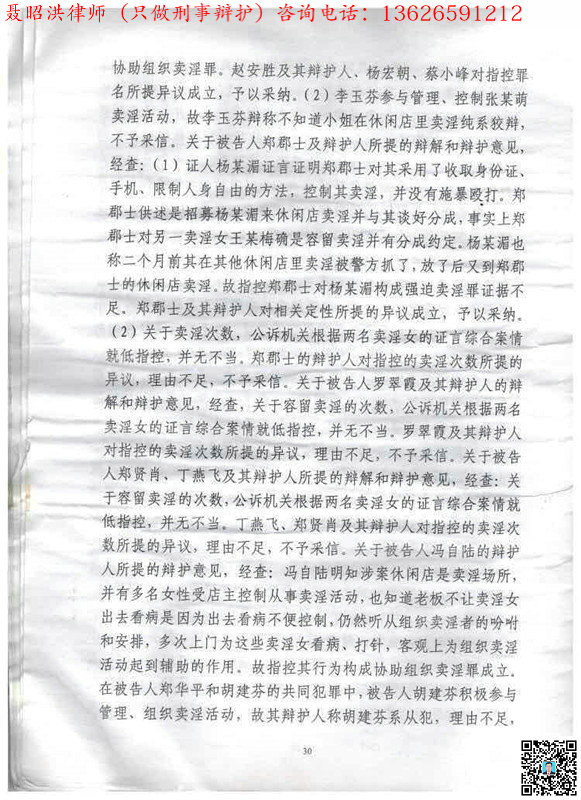 聂昭洪律师（只做刑事辩护）咨询电话：13626591212
协助组织卖淫罪。赵安胜及其辩护人、杨宏朝、蔡小峰对指控罪
名所提异议成立，予以采纳。（2）李玉芬参与管理、控制张某萌
卖淫活动，故李玉芬辩称不知道小姐在休闲店里卖淫纯系狡辩，
不予采信。关于被告人郑郡士及辩护人所提的辩解和辩护意见，
经查：（1）证人杨某湄证言证明郑郡士对其采用了收取身份证、
手机、限制人身自由的方法，控制其卖淫，并没有施暴殴打。郑
郡士供述是招募杨某湄来休闲店卖淫并与其谈好分成，事实上郑
郡士对另一卖淫女王某梅确是容留卖淫并有分成约定。杨某湄也
称二个月前其在其他休闲店里卖淫被警方抓了，放了后又到郑郡
士的休闲店卖淫。故指控郑郡士对杨某湄构成强迫卖淫罪证据不
足。郑郡士及其辩护人对相关定性所提的异议成立，予以采纳。
（2）关于卖淫次数，公诉机关根据两名卖淫女的证言综合案情
就低指控，并无不当。郑郡士的辩护人对指控的卖淫次数所提的
异议，理由不足，不予采信。关于被告人罗翠霞及其辩护人的辩
解和辩护意见，经查，关于容留卖淫的次数，公诉机关根据两名
卖淫女的证言综合案情就低指控，并无不当。罗翠霞及其辩护人
对指控的卖淫次数所提的异议，理由不足，不予采信。关于被告
人郑贤肖、丁燕飞及其辩护人所提的辩解和辩护意见，经查：关
于容留卖淫的次数，公诉机关根据两名卖淫女的证言综合案情就
低指控，并无不当。丁燕飞、郑贤肖及其辩护人对指控的卖淫次
数所提的异议，理由不足，不予采信。关于被告人冯自陆的辩护
人所提的辩护意见，经查：冯自陆明知涉案休闲店是卖淫场所，
并有多名女性受店主控制从事卖淫活动，也知道老板不让卖淫女
出去看病是因为出去看病不便控制，仍然听从组织卖淫者的吩咐
和安排，多次上门为这些卖淫女看病、打针，客观上为组织卖淫
活动起到辅助的作用。故指控其行为构成协助组织卖淫罪成立。
在被告人郑华平和胡建芬的共同犯罪中，被告人胡建芬积极参与
管理、组织卖淫活动，故其辩护人称胡建芬系从犯，理由不足，
30